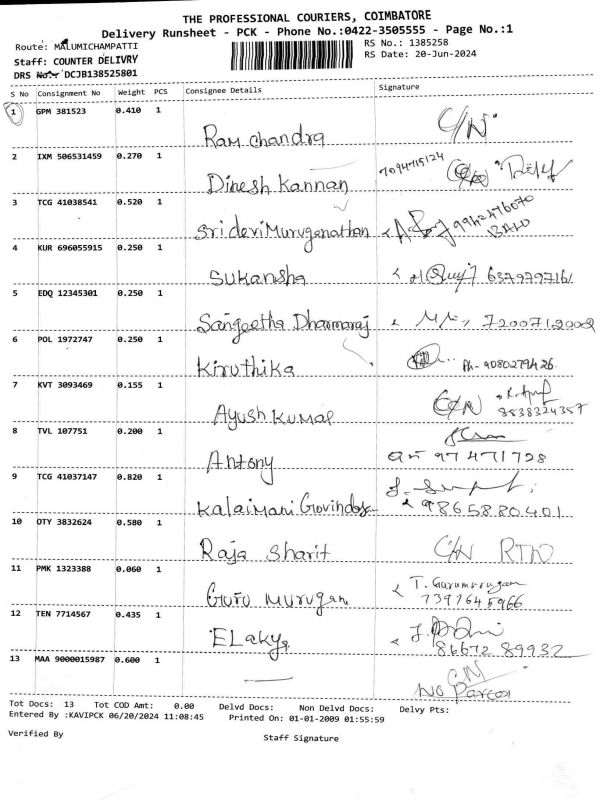 THE PROFESSIONAL COURIERS, COIMBATORE
Delivery Runsheet - PCK - Phone No.:0422-3505555 - Page No.:1
Route: MALUMICHAMPATTI RS No.: 1385258
Staff: COUNTER DELIVRY RS Date: 20-Jun-2024
DRS No DCJB138525801
S No Consignment No Weight PCS Consignee Details Signature
1 GPM 381523 0.410 1 Ram chandra C/N
2 IXM 506531459 0.270 1 Dinesh Kannan 7094715124
3 TCG 41038541 0.520 1 Sridevi Muruganathan
4 KUR 696055915 0.250 1 Sukansha
5 EDQ 12345301 0.250 1 Sangeetha Dharmaraj
6 POL 1972747 0.250 1 Kiruthika Ph- 9080279426
7 KVT 3093469 0.155 1 Ayush Kumar C/N 8538324357
8 TVL 107751 0.200 1 Antony
9 TCG 41037147 0.820 1 Kalaimani 9865880401
10 OTY 3832624 0.580 1 Raja Sharit C/N RTO
11 PMK 1323388 0.060 1 Guru Murugan T. Gurumurugan
7397645966
12 TEN 7714567 0.435 1 Elakya 86672 89932
13 MAA 9000015987 0.600 1 C/N
No Parcel
Tot Docs: 13 Tot COD Amt: 0.00 Delvd Docs: Non Delvd Docs: Delvy Pts:
Entered By :KAVIPCK 06/20/2024 11:08:45 Printed On: 01-01-2009 01:55:59
Verified By Staff Signature